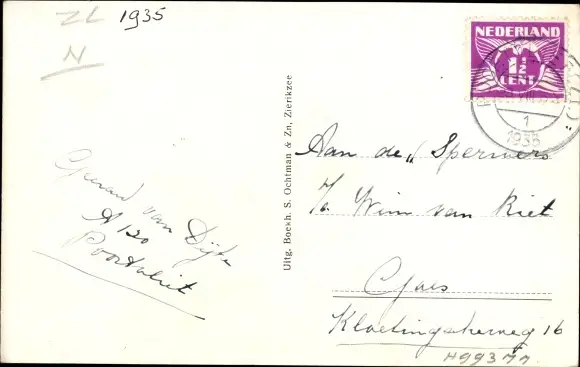 ZL 1935
N
NEDERLAND
1½
CENT
1
1935
Aan de „Sperwers
p/a Wim van Riet
Goes
Kloetingscheweg 16
H99377
Gerard van Dijke
A 120
Poortvliet
Uitg. Boekh. S. Ochtman & Zn, Zierikzee